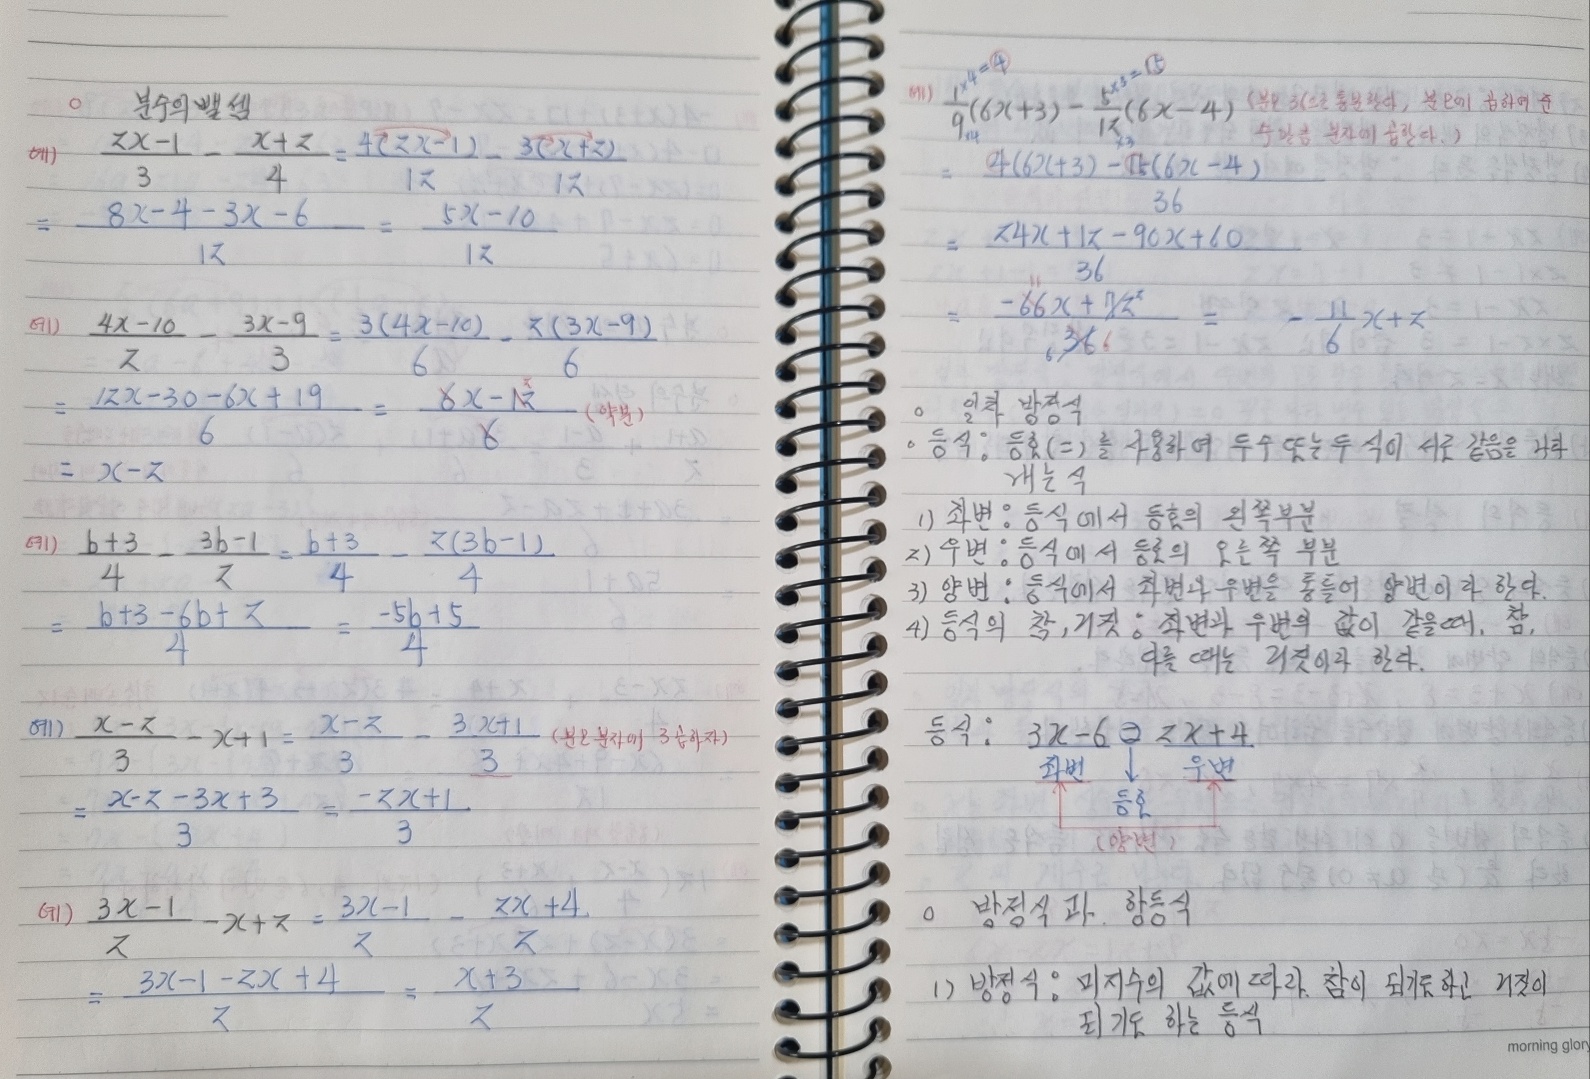 ○ 분수의 뺄셈
예) (2x-1)/3 - (x+2)/4 = 4(2x-1)/12 - 3(x+2)/12
= (8x-4-3x-6)/12 = (5x-10)/12
예) (4x-10)/2 - (3x-9)/3 = 3(4x-10)/6 - 2(3x-9)/6
= (12x-30-6x+19)/6 = (6x-12)/6 (약분)
= x-2
예) (b+3)/4 - (3b-1)/2 = (b+3)/4 - 2(3b-1)/4
= (b+3-6b+2)/4 = (-5b+5)/4
예) (x-2)/3 - x+1 = (x-2)/3 - (3x+1)/3 (분모분자에 3 곱하자)
= (x-2-3x+3)/3 = (-2x+1)/3
예) (3x-1)/2 - x+2 = (3x-1)/2 - (2x+4)/2
= (3x-1-2x+4)/2 = (x+3)/2
×4=④ ×3=15
예) 1/9(6x+3) - 5/12(6x-4) (분모 36으로 통분한다, 분모에 곱하여 준
×4 ×3 수만큼 분자에 곱한다.)
= (4(6x+3)-15(6x-4))/36
= (24x+12-90x+60)/36
= (-66x+72)/36 = -11/6 x+2
○ 일차 방정식
○ 등식 : 등호(=)를 사용하여 두수 또는 두 식이 서로 같음을 나타
내는 식
1) 좌변 : 등식에서 등호의 왼쪽부분
2) 우변 : 등식에서 등호의 오른쪽 부분
3) 양변 : 등식에서 좌변과 우변을 통틀어 양변이라 한다.
4) 등식의 참, 거짓 : 좌변과 우변의 값이 같을때. 참,
다를 때는 거짓이라 한다.
등식 : 3x-6 = 2x+4
좌변 우변
등호
(양변)
○ 방정식과 항등식
1) 방정식 : 미지수의 값에 따라 참이 되기도하고 거짓이
되기도 하는 등식
morning glory